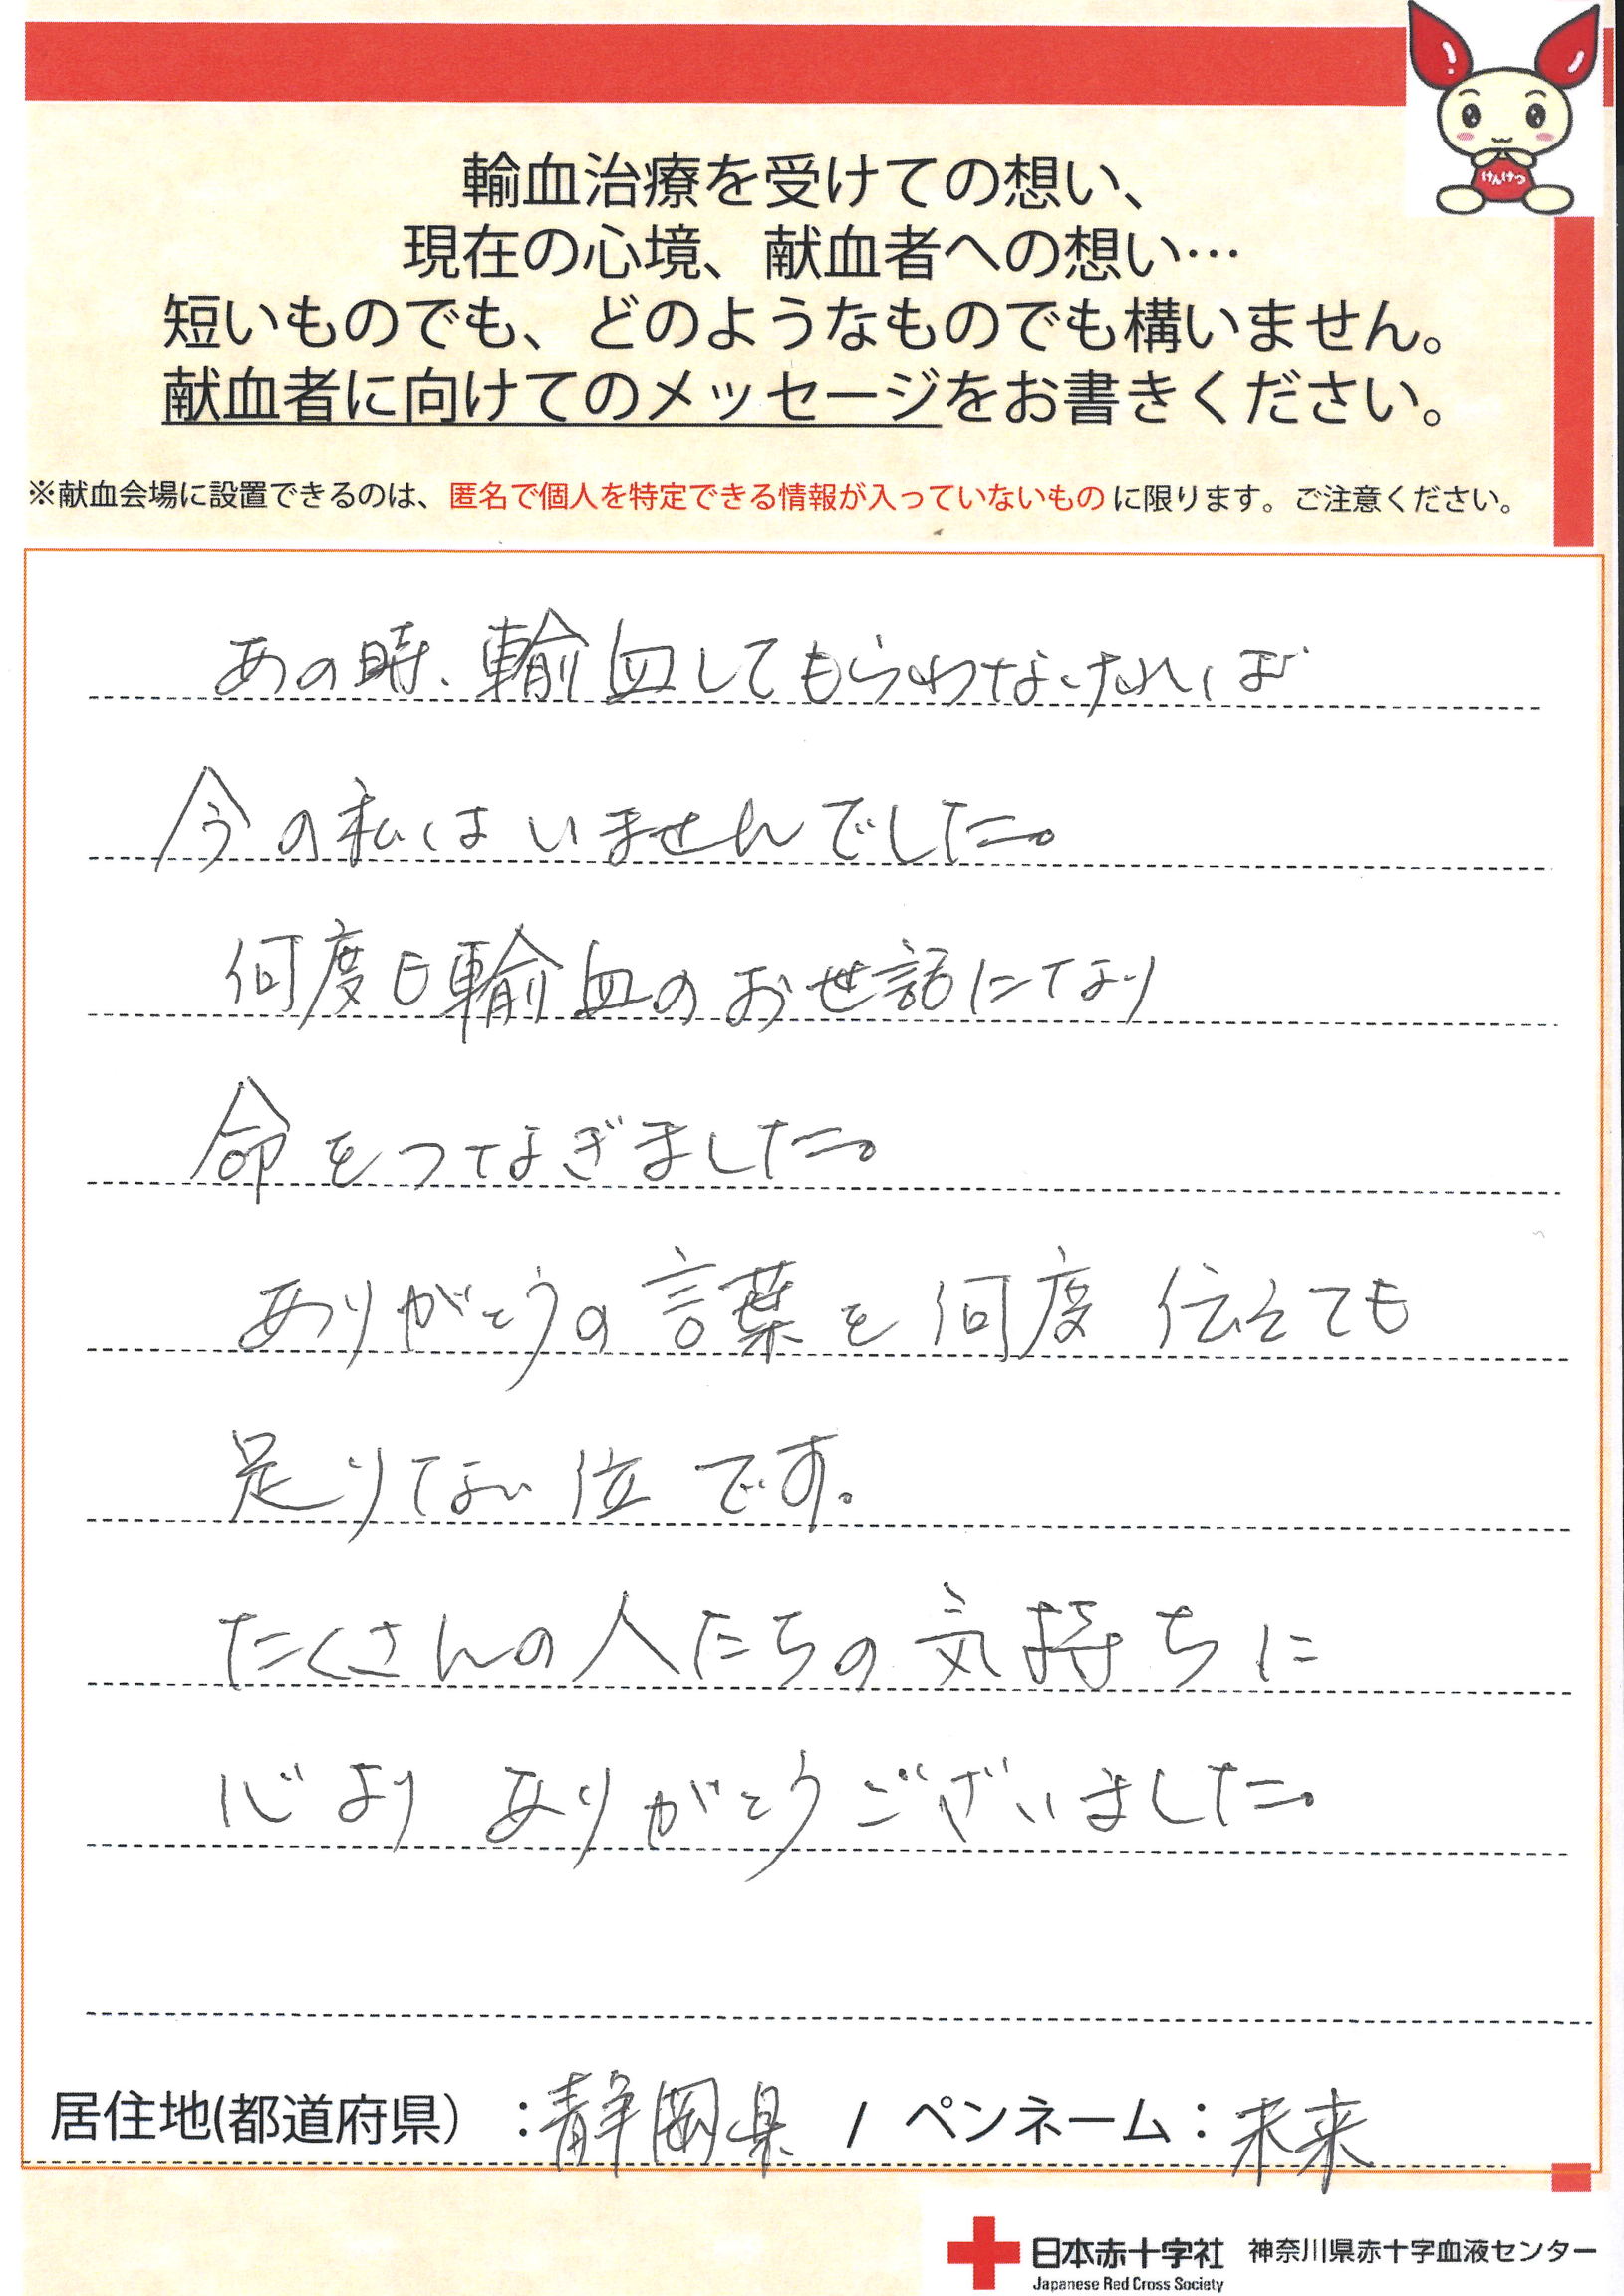 けんけつ
輸血治療を受けての想い、
現在の心境、献血者への想い…
短いものでも、どのようなものでも構いません。
献血者に向けてのメッセージをお書きください。
※献血会場に設置できるのは、匿名で個人を特定できる情報が入っていないものに限ります。ご注意ください。
あの時、輸血してもらわなければ
今の私はいませんでした。
何度も輸血のお世話になり
命をつなぎました。
ありがとうの言葉を何度伝えても
足りない位です。
たくさんの人たちの気持ちに
心よりありがとうございました。
居住地(都道府県）：静岡県 / ペンネーム：未来
日本赤十字社 神奈川県赤十字血液センター
Japanese Red Cross Society